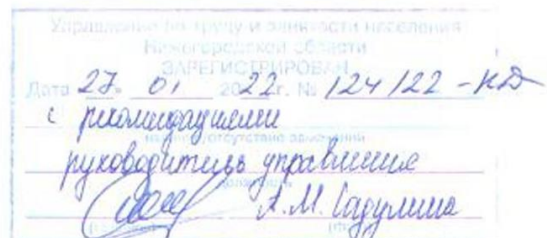 Управление по труду и занятости населения
Нижегородской области
ЗАРЕГИСТРИРОВАН
Дата 27 01 2022г. № 124/22-КД
с рекомендациями
наличие/отсутствие замечаний
руководитель управления
должность
А.М. Садулина